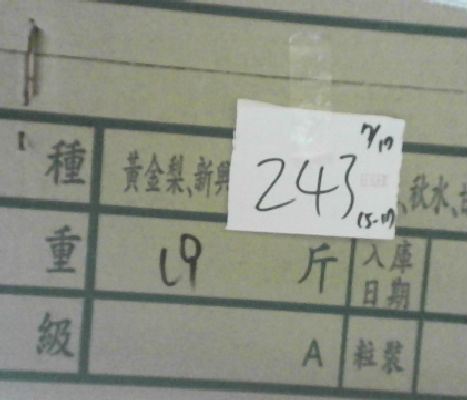 種 黃金梨、新興 、秋水、
243
(5-17)
重 19 斤 入庫日期
級 A 粒裝